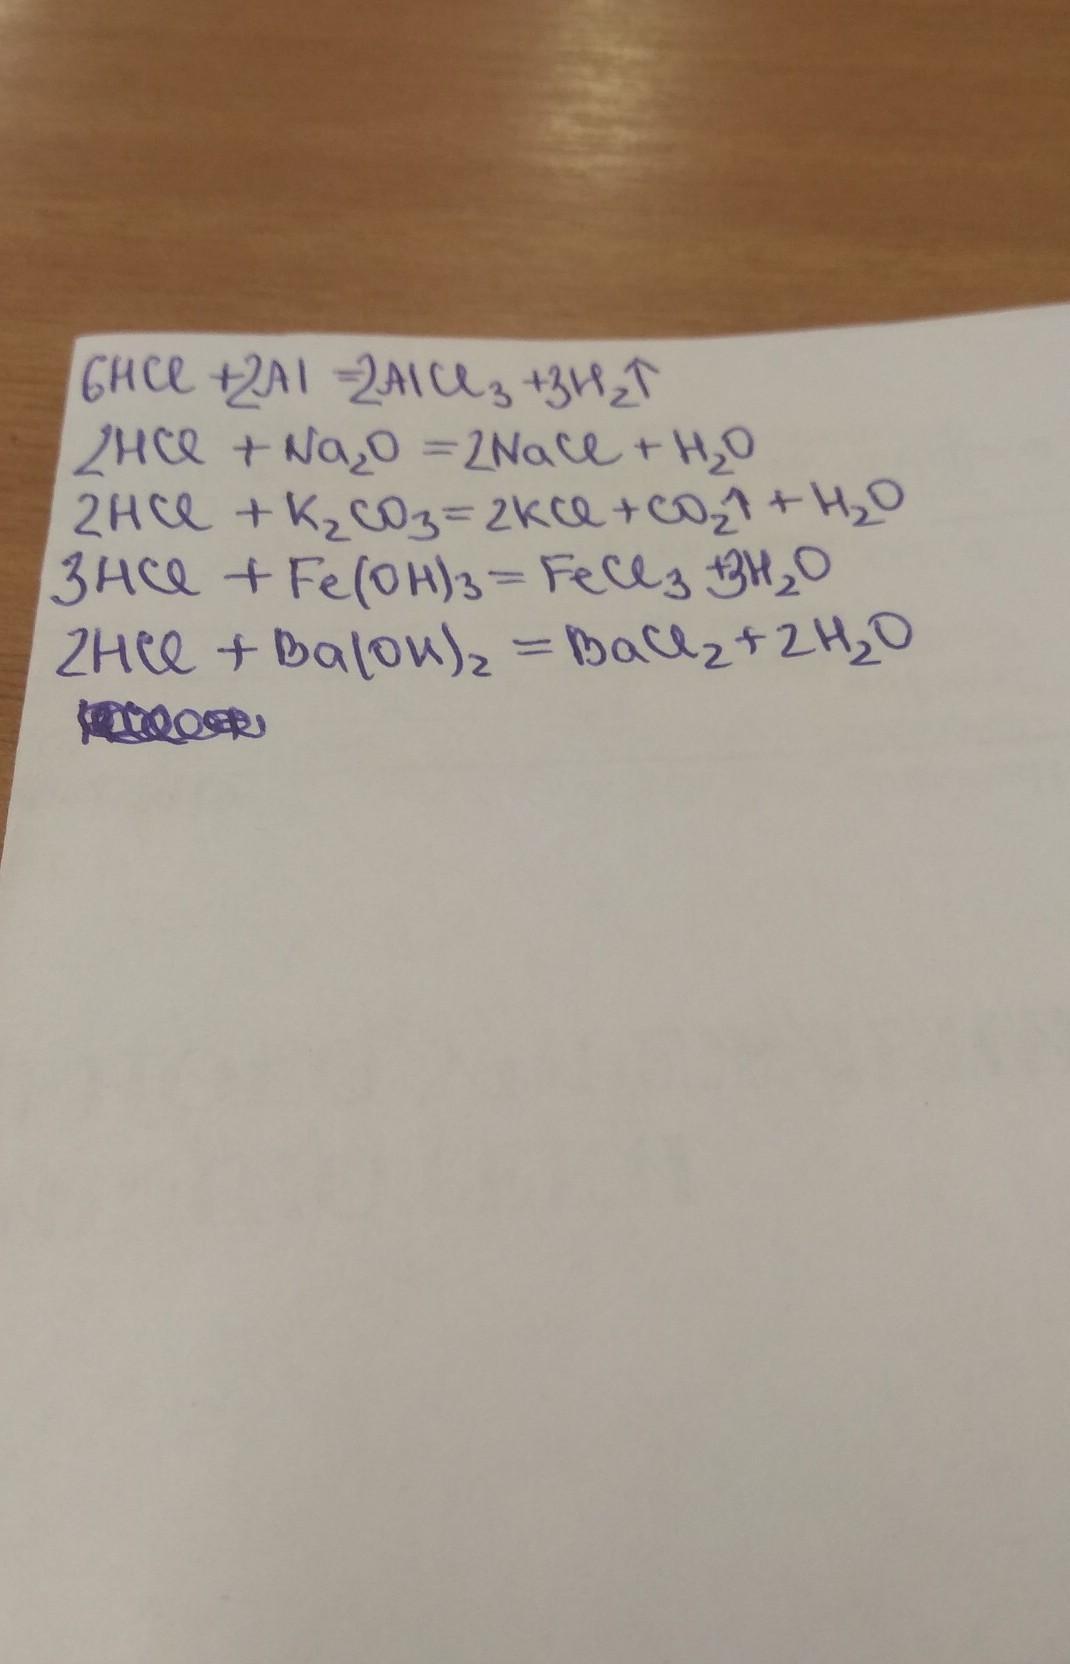 6HCl +2Al =2AlCl₃ +3H₂↑
2HCl + Na₂O = 2NaCl + H₂O
2HCl + K₂CO₃ = 2KCl + CO₂↑ + H₂O
3HCl + Fe(OH)₃ = FeCl₃ +3H₂O
2HCl + Ba(OH)₂ = BaCl₂ + 2H₂O